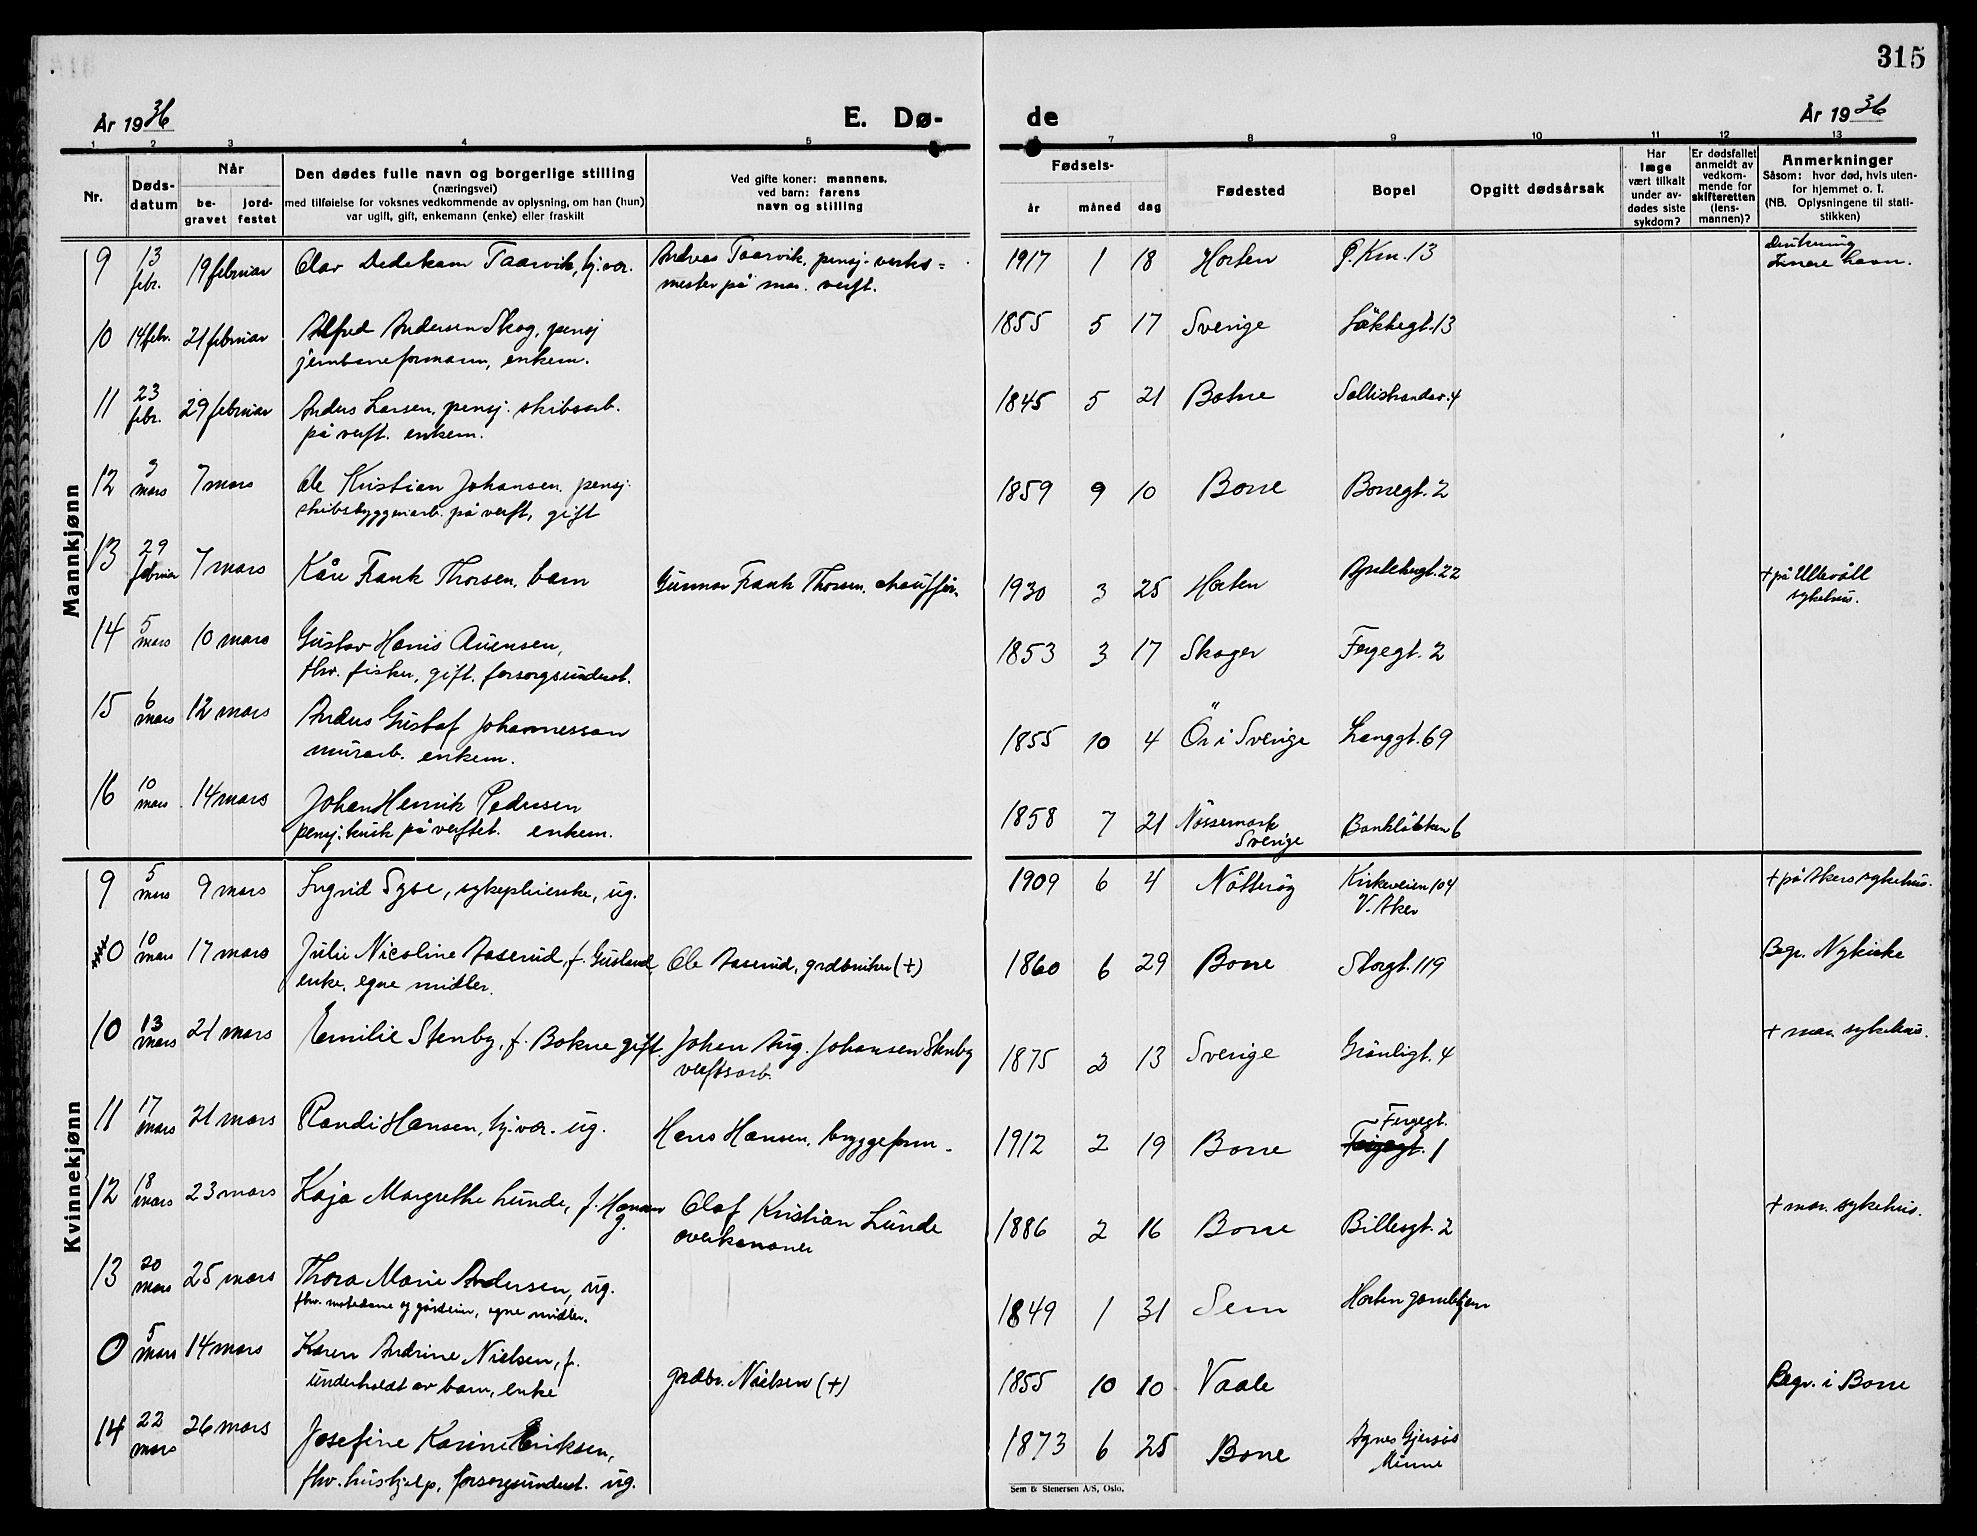 315
År 1936
E. Dø-
de
År 1936
1 2 3 4 5 6 7 8 9 10 11 12 13
Nr.
Døds-
datum
Når
be-
gravet
jord-
festet
Den dødes fulle navn og borgerlige stilling
(næringsvei)
med tilføielse for voksnes vedkommende av oplysning, om han (hun)
var ugift, gift, enkemann (enke) eller fraskilt
Ved gifte koner: mannens,
ved barn: farens
navn og stilling
Fødsels-
år måned dag
Fødested
Bopel
Opgitt dødsårsak
Har
læge
vært tilkalt
under av-
dødes siste
sykdom?
Er dødsfallet
anmeldt av
vedkom-
mende for
skifteretten
(lens-
mannen)?
Anmerkninger
Såsom: hvor død, hvis uten-
for hjemmet o. l.
(NB. Oplysningene til stati-
stikken)
Mannkjønn
9 13 febr. 19 februar Olav Dedekam Taarvik, hj.vær. Andreas Taarvik, pensj. verks= 1917 1 18 Horten P. Km. 13 Drukning
mester på mar. verft. Indre havn.
10 14 febr. 21 februar Alfred Andersen Skog, pensj 1855 5 17 Sverige Løkkegt. 13
jernbaneformann, enkem.
11 23 febr. 29 februar Anders Larsen, pensj. skibsarb. 1845 5 21 Botne Sollistrandv. 4
på verft. enkem.
12 3 mars 7 mars Ole Kristian Johansen, pensj. 1859 9 10 Borre Borregt. 2
skibsbyggerarb. på verft, gift
13 29 februar 7 mars Kåre Frank Thorsen, barn Gunnar Frank Thorsen, chauffør. 1930 3 25 Horten Apotekergt. 22 + på Ullevåll
sykehus.
14 5 mars 10 mars Gustav Hanis Auensen, 1853 3 17 Skoger Fergegt. 2
fhv. fisker, gift. forsorgsunderst.
15 6 mars 12 mars Anders Gustaf Johannesson 1855 10 4 Ör i Sverige Langgt. 69
murarb. enkem.
16 10 mars 14 mars Johan Henrik Pedersen 1858 7 21 Nössemark Bankløkken 6
pensj. kusk på verftet. enkem. Sverige
Kvinnekjønn
9 5 mars 9 mars Ingrid Syse, sykepleierske, ug. 1909 6 4 Nøtterøy Kirkeveien 104 + på Akers sykehus.
V. Aker
0 10 mars 17 mars Julie Nicoline Aaserud, f. Gusland Ole Aaserud, grdbruker (+) 1860 6 29 Borre Storgt. 119 Begr. Nykirke
enke, egne midler.
10 13 mars 21 mars Emilie Stenby, f. Bokne gift Johan Aug. Johansen Stenby 1875 2 13 Sverige Grønligt. 4 + mar. sykehus.
verftsarb.
11 17 mars 21 mars Randi Hansen, hj.vær. ug. Hans Hansen, bryggeform. 1912 2 19 Borre Fergegt. 1
12 18 mars 23 mars Kaja Margrethe Lunde, f. Hansen Olaf Kristian Lunde 1886 2 16 Borre Billesgt. 2 + mar. sykehus.
g. overkanoner
13 20 mars 25 mars Thora Marie Andersen, ug. 1849 1 31 Sem Horten gamlehjem
fhv. motedame og gårdeier, egne midler.
0 5 mars 14 mars Karen Andrine Nielsen, f. grdbr. Nielsen (+) 1855 10 10 Vaale Begr. i Borre
underholdt av barn, enke
14 22 mars 26 mars Josefine Karine Eriksen, 1873 6 25 Borre Agnes Gjersøs
fhv. hushjelp, forsorgsunderst. ug. Minne
Sem & Stenersen A/S, Oslo.